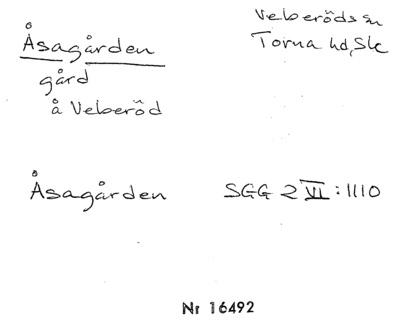 Åsagården
gård
å Veberöd
Veberöds sn
Torna hd, Sk
Åsagården SGG 2 VI:1110
Nr 16492